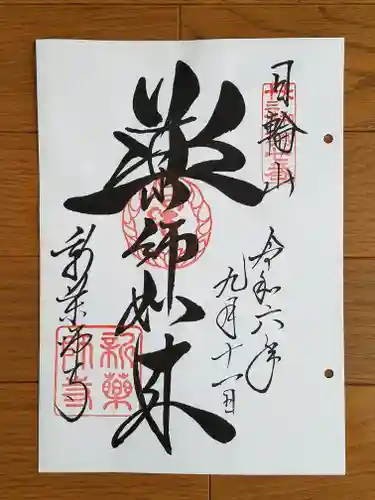 日輪山
令和六年
九月十一日
薬師如来
新薬師寺
新薬
師寺